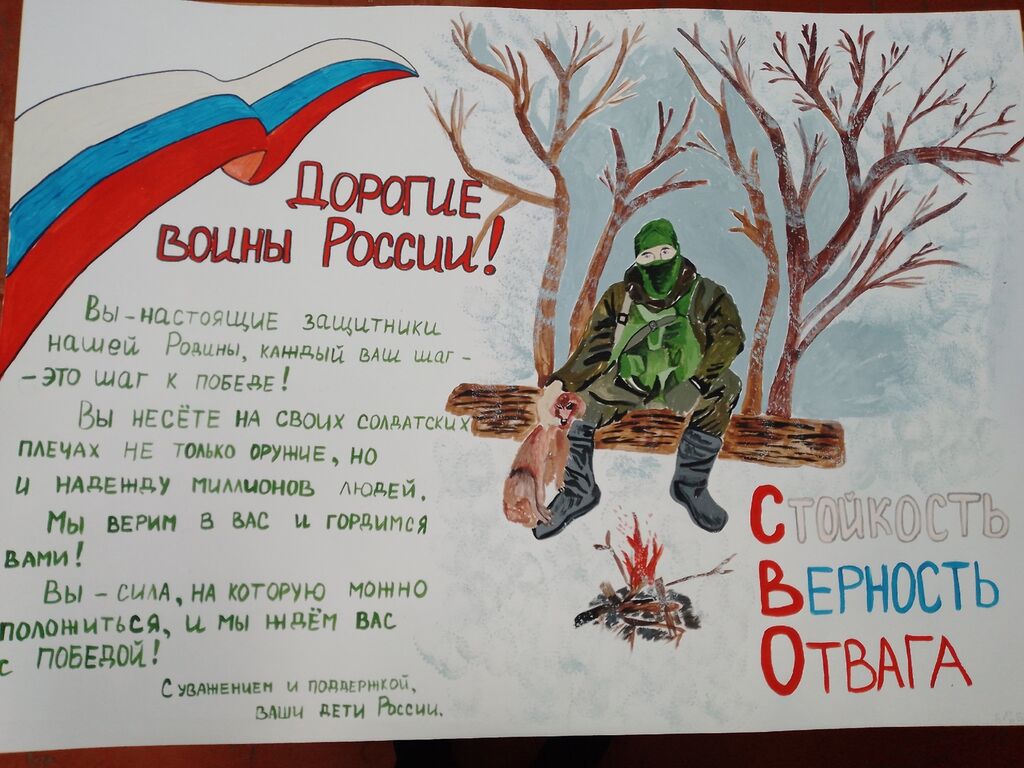 Дорогие
воины России!
Вы - настоящие защитники
нашей Родины, каждый ваш шаг -
- это шаг к победе!
Вы несёте на своих солдатских
плечах не только оружие, но
и надежду миллионов людей.
Мы верим в вас и гордимся
вами!
Вы - сила, на которую можно
положиться, и мы ждём вас
с победой!
С уважением и поддержкой,
ваши дети России.
Стойкость
Верность
Отвага